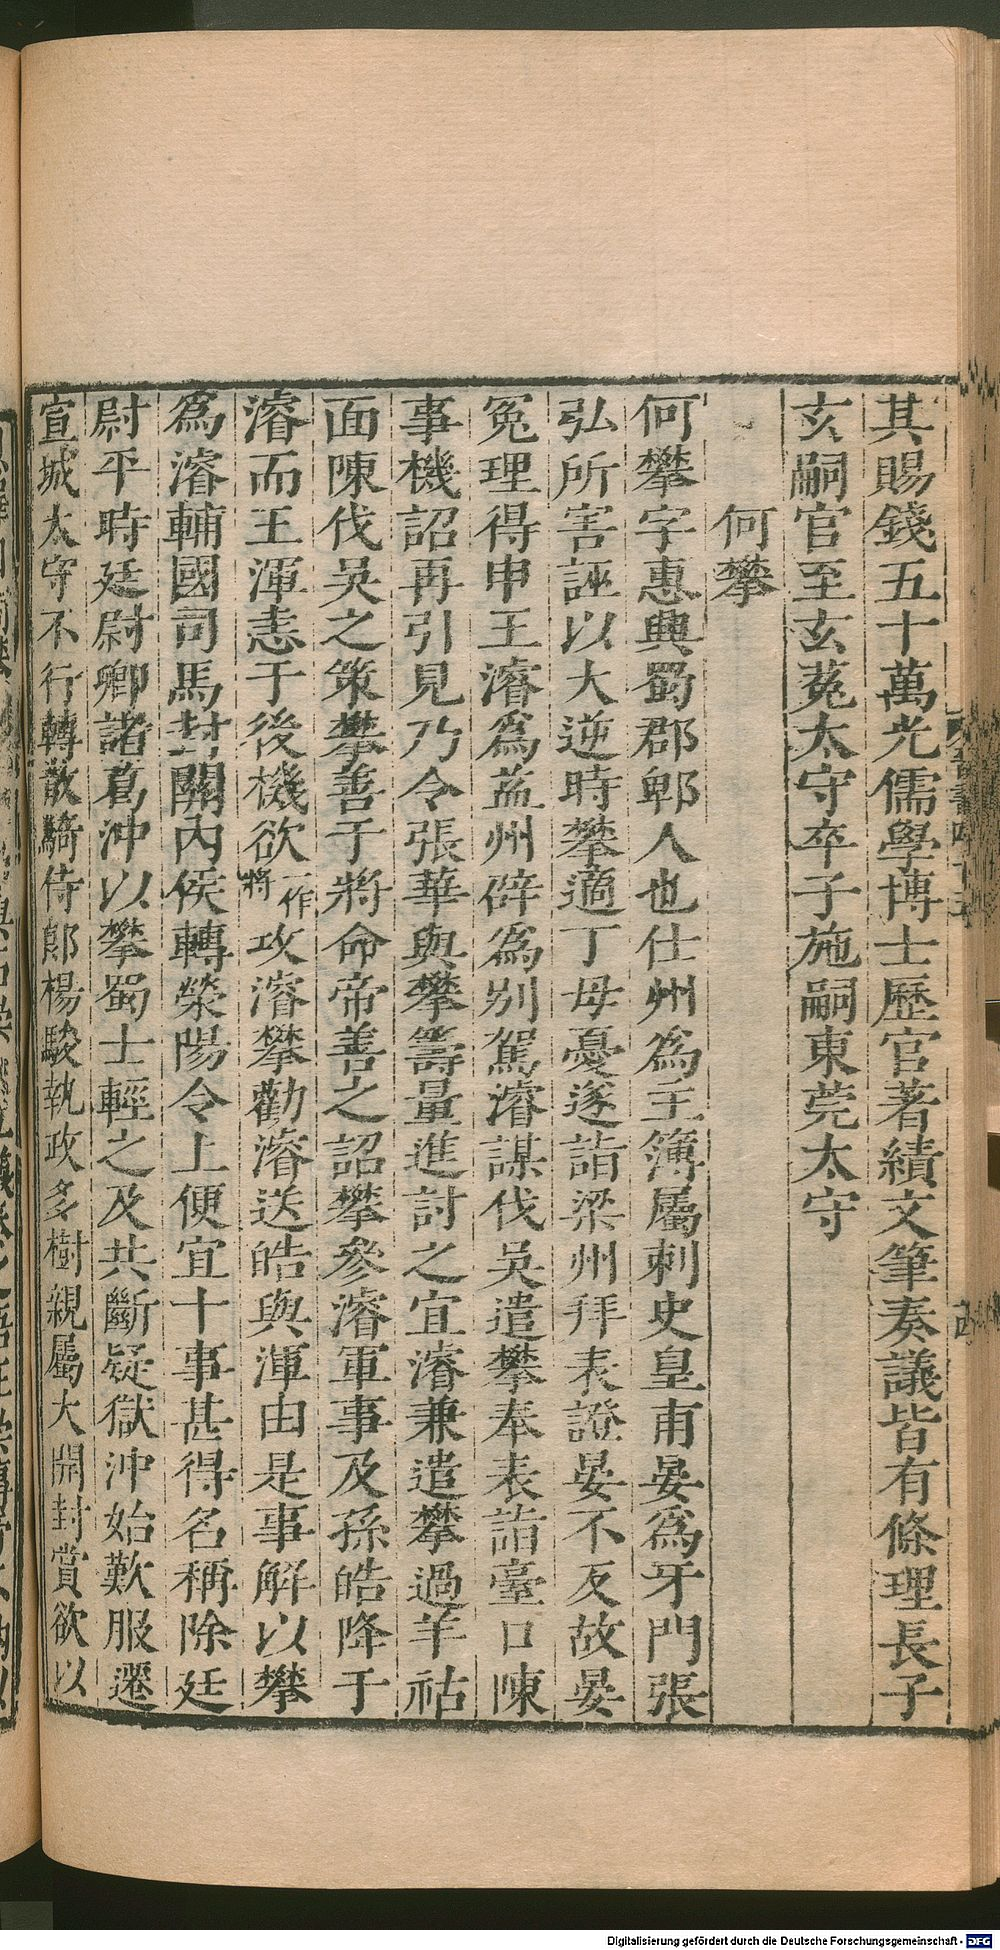 其賜錢五十萬光儒學博士歷官著績文筆奏議皆有條理長子
玄嗣官至玄菟太守卒子施嗣東莞太守
何攀
何攀字惠興蜀郡郫人也仕州爲主簿屬刺史皇甫晏爲牙門張
弘所害誣以大逆時攀適丁母憂遂詣梁州拜表證晏不反故晏
冤理得申王濬爲益州辟爲別駕濬謀伐吳遣攀奉表詣臺口陳
事機詔再引見乃令張華與攀籌量進討之宜濬兼遣攀過羊祜
面陳伐吳之策攀善于將命帝善之詔攀參濬軍事及孫皓降于
濬而王渾恚于後機欲一作將攻濬攀勸濬送皓與渾由是事解以攀
爲濬輔國司馬封關內侯轉滎陽令上便宜十事甚得名稱除廷
尉平時廷尉卿諸葛沖以攀蜀士輕之及共斷疑獄沖始歎服遷
宣城太守不行轉散騎侍郎楊駿執政多樹親屬大開封賞欲以
Digitalisierung gefördert durch die Deutsche Forschungsgemeinschaft - DFG